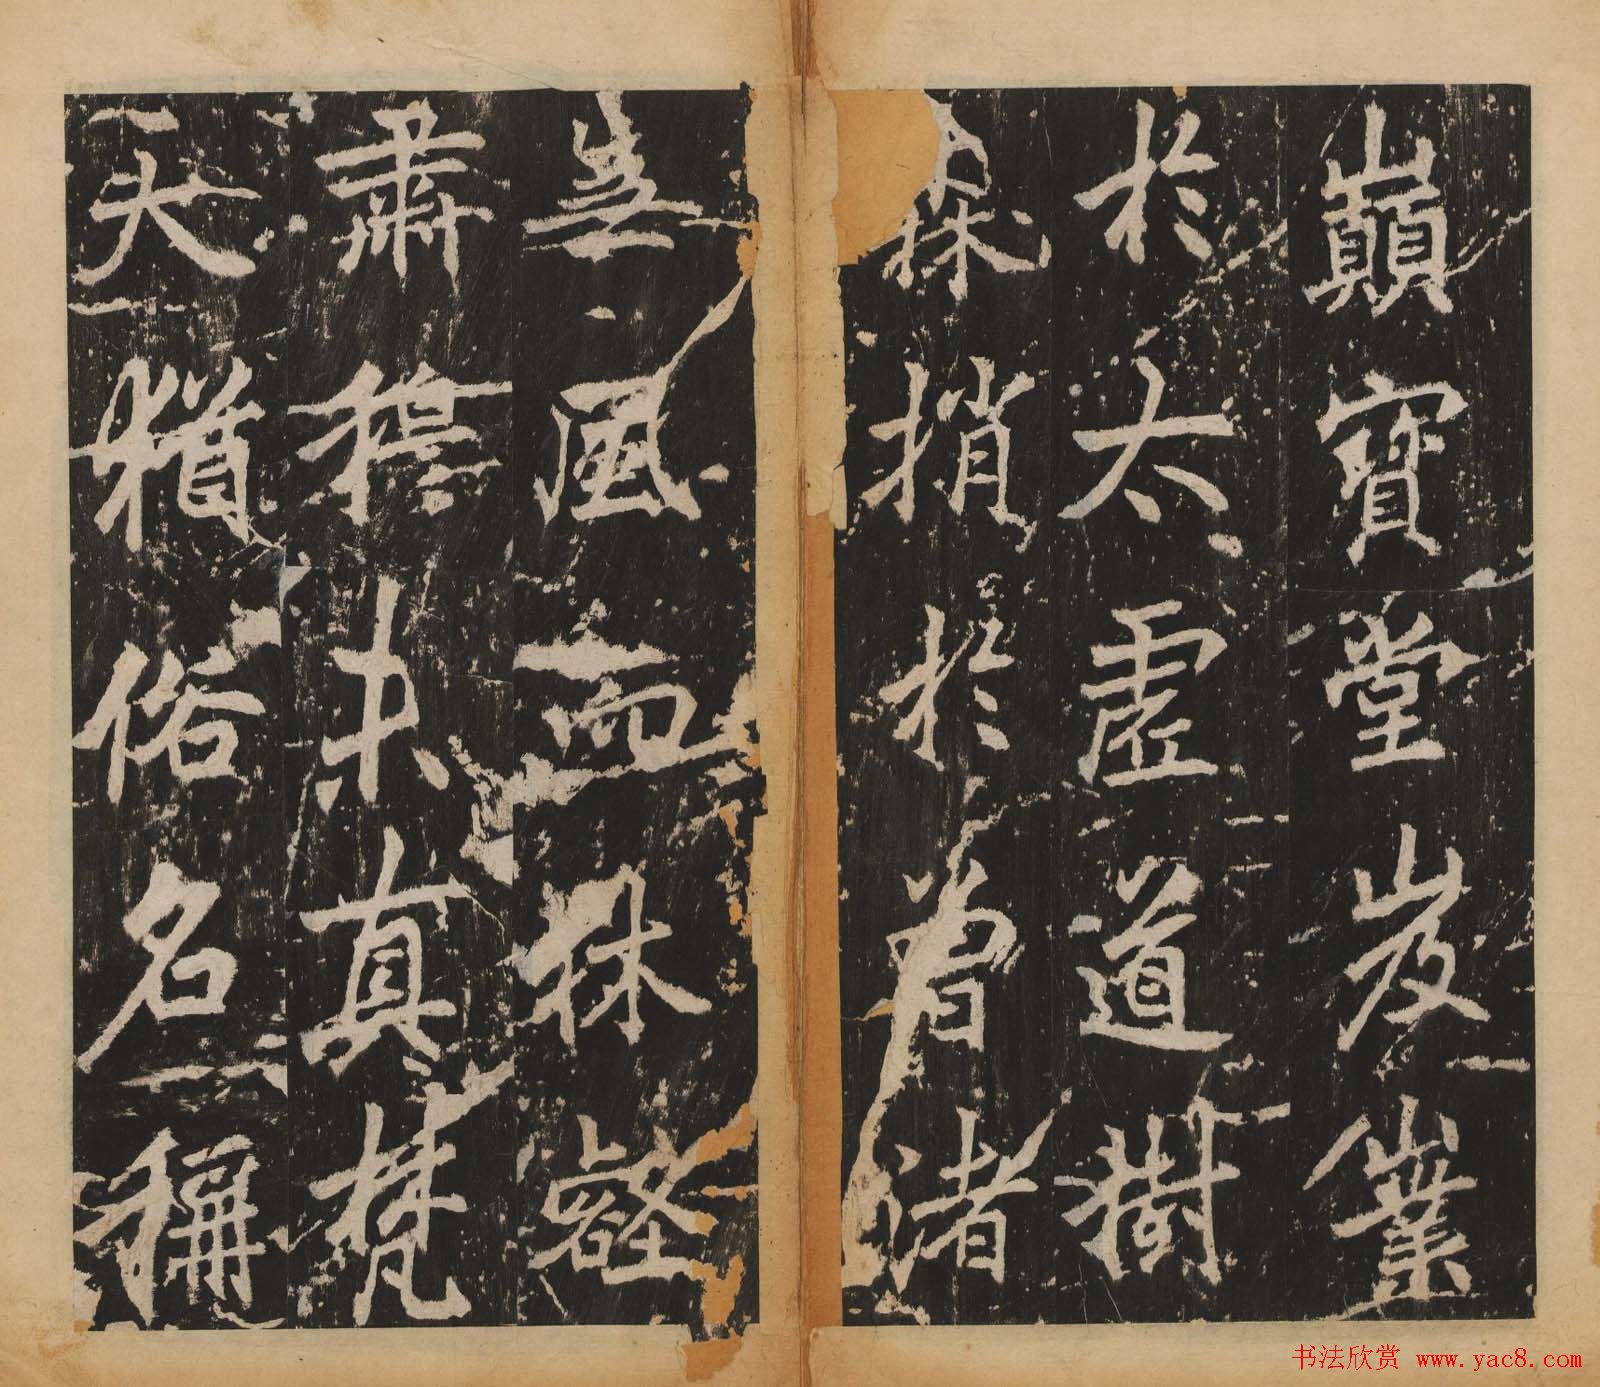 巔寶堂岌嶪
於太虛道樹
森捎於曾渚
無風而林壑
肅穆未真梵
天猶俗名稱
书法欣赏 www.yac8.com